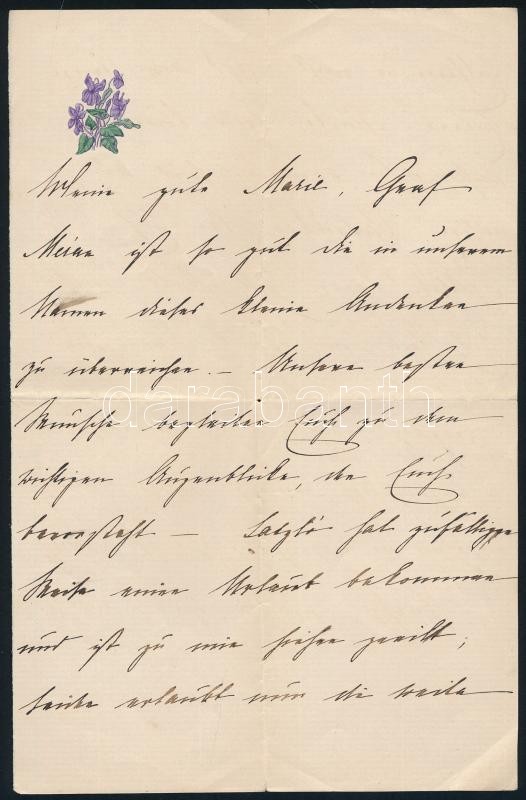 Meine gute Marie, Graf
ist so gut die in unserem
Namen dieses kleine Andenken
zu überreichen. – Unsere besten
Wünsche begleiten Euch zu dem
wichtigen Augenblicke, der Euch
bevorsteht – László hat zufälliger
Weise einen Urlaub bekommen
und ist zu mir hieher geeilt;
leider erlaubt mir die weite
darabanth